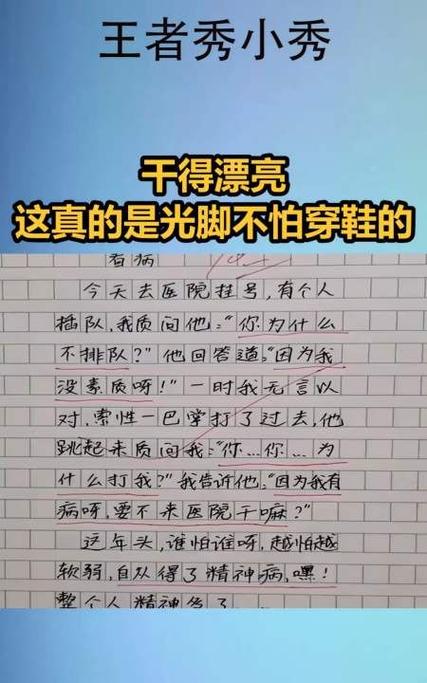 王者秀小秀
干得漂亮
这真的是光脚不怕穿鞋的
看病
今天去医院挂号,有个人
插队,我质问他:“你为什么
不排队?”他回答道:“因为我
没素质呀!”一时我无言以
对,索性一巴掌打了过去,他
跳起来质问我:“你…你…为
什么打我?”我告诉他:“因为我有
病呀,要不来医院干嘛?”
这年头,谁怕谁呀,越怕越
软弱,自从得了精神病,嘿!
整个人精神多了